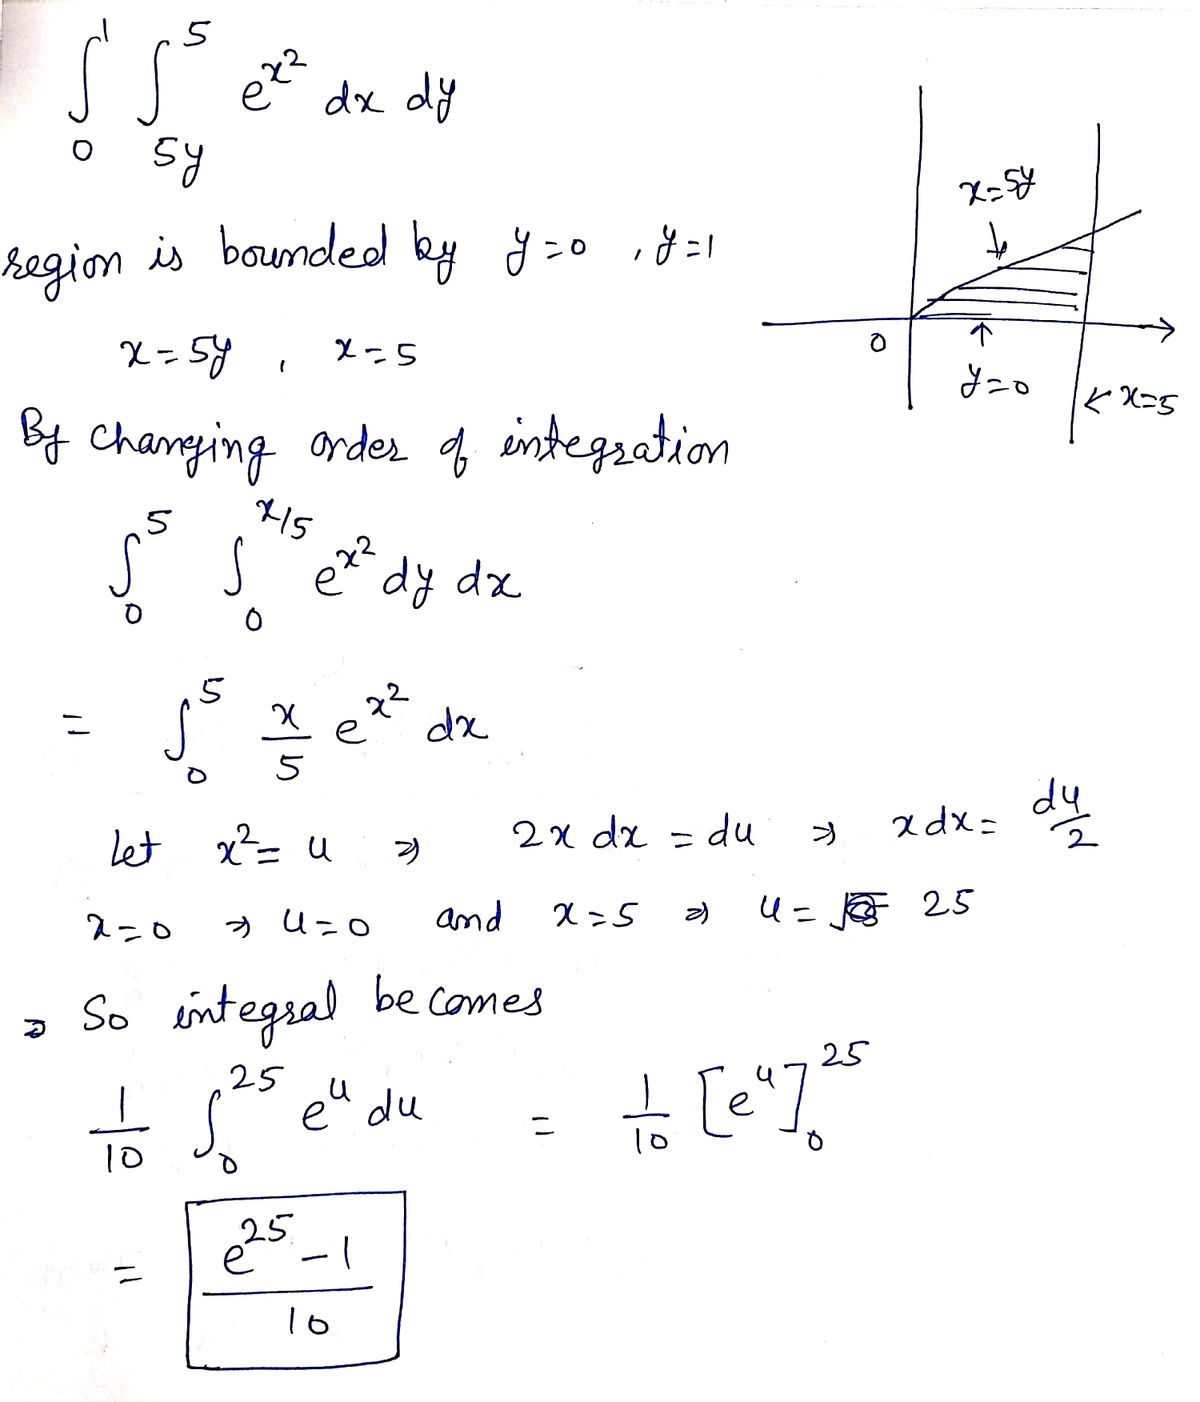 ∫₀¹ ∫₅ᵧ⁵ e^{x²} dx dy
region is bounded by y=0 , y=1
x=5y , x=5
x=5y
0
y=0
x=5
By changing order of integration
∫₀⁵ ∫₀^{x/5} e^{x²} dy dx
= ∫₀⁵ x/5 e^{x²} dx
Let x²= u ⇒ 2x dx = du ⇒ x dx = du/2
x=0 ⇒ u=0 and x=5 ⇒ u= 25
⇒ So integral becomes
1/10 ∫₀²⁵ e^u du = 1/10 [e^u]₀²⁵
= (e²⁵ - 1)/10